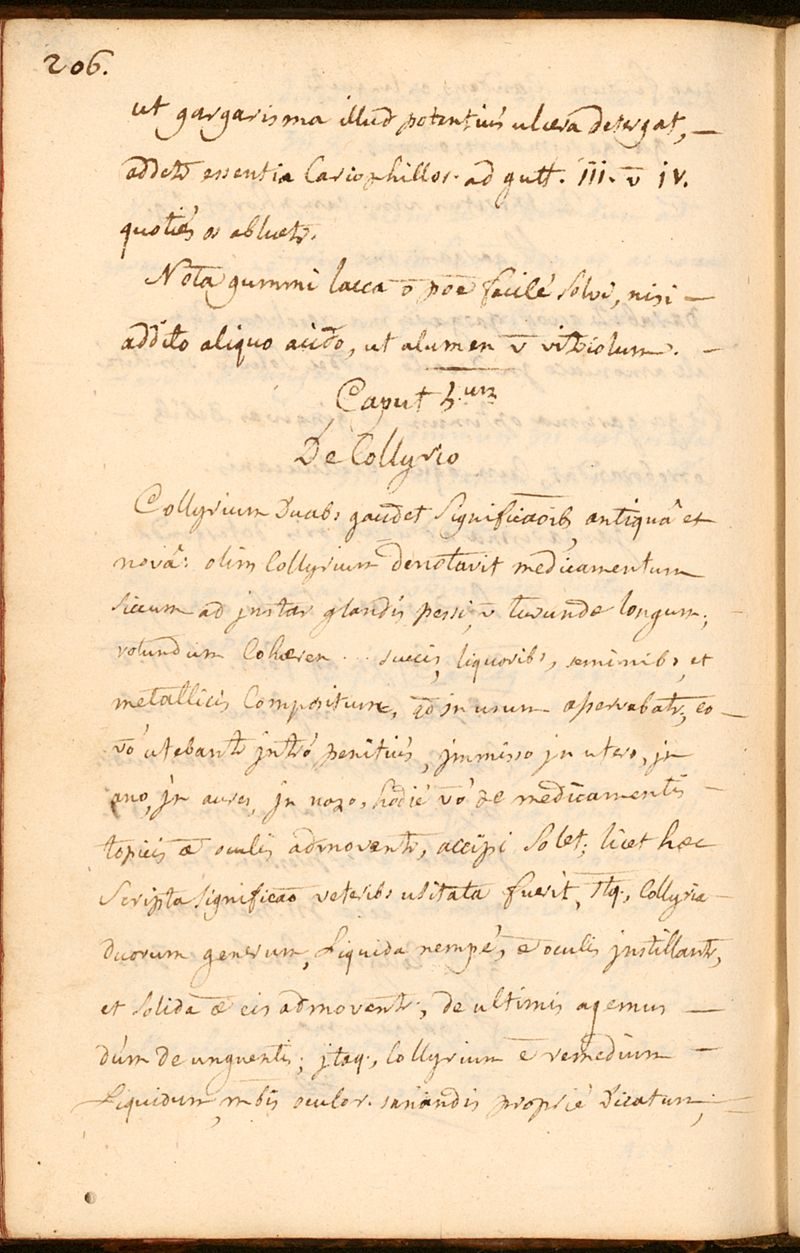 206.
ut gargarisma illud potentius ulcera detergat, —
addetr essentia Cariophillor. ad gutt. III. v̄ IV.
quotiés os abluetr.
Nota gummi lacca ō poē facilé solvi, nisi —
addito aliquo acido, ut alumen v̄ vitriolum. —
Caput 5.um
De Collyrio
Collyrium Duabs gaudet Significaōib, antiquâ et
novâ: olim Collyrium denotavit medicamentum
siccum ad instar glandis pessi, v̄ turundæ longum,
rotundum Cohæren .. succis, liquoribs, seminibs, et
metallicis Compositum, qd in usum asservabatr, eo —
vó utebantr intró penitiús, immisso in utero, in
ano, in aures, in naso, hodié vó de medicamentis —
topicis æ oculis admoventr, accipi solet; licet hæc
Scripta significaō veteribs usitata fuerit, Itq, Collyria —
duorum generum, Liquida nempé, æ oculis instillantr,
et solida æ eis admoventr, de ultimis agemus —
dúm de unguentis; itaq., Collyrium ē remedium —
Liquidum, mbis oculor. sanandis proprié Dicatum,